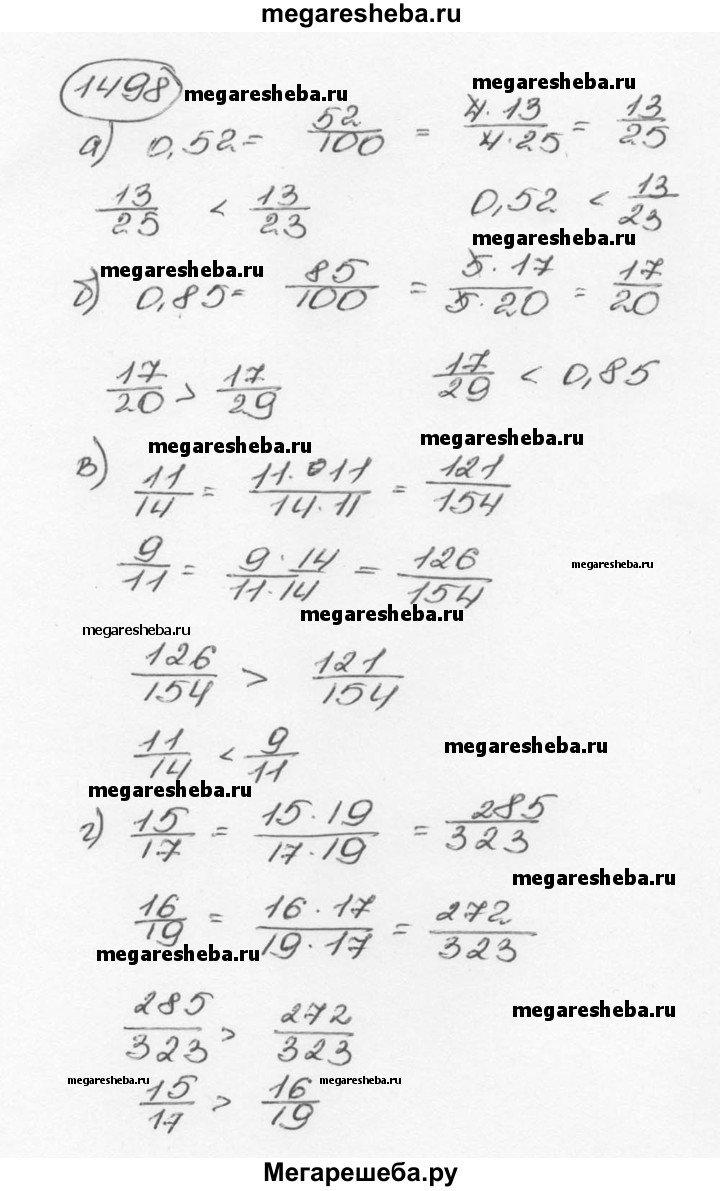 megaresheba.ru
1498 megaresheba.ru megaresheba.ru
а) 0,52 = 52/100 = 4·13/4·25 = 13/25
13/25 < 13/23 0,52 < 13/23
megaresheba.ru megaresheba.ru
б) 0,85 = 85/100 = 5·17/5·20 = 17/20
17/20 > 17/29 17/29 < 0,85
megaresheba.ru megaresheba.ru
в) 11/14 = 11·11/14·11 = 121/154
9/11 = 9·14/11·14 = 126/154 megaresheba.ru
megaresheba.ru
megaresheba.ru
126/154 > 121/154
11/14 < 9/11 megaresheba.ru
megaresheba.ru
г) 15/17 = 15·19/17·19 = 285/323
megaresheba.ru
16/19 = 16·17/19·17 = 272/323
megaresheba.ru
285/323 > 272/323 megaresheba.ru
megaresheba.ru megaresheba.ru
15/17 > 16/19
Мегарешеба.ру